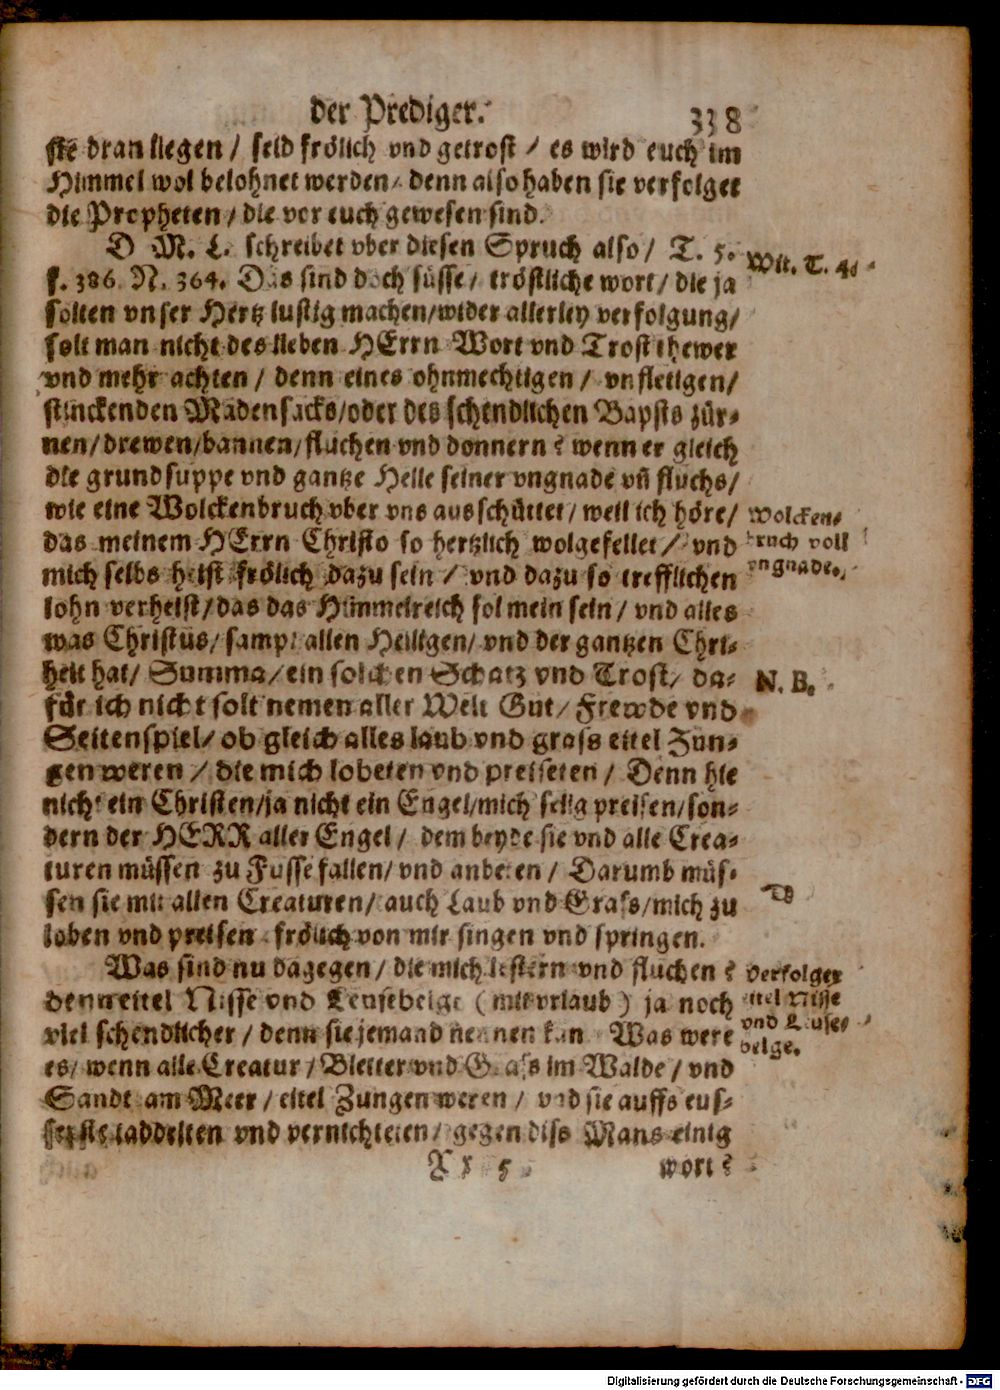 der Prediger. 338
sie dran liegen / seid frölich vnd getrost / es wird euch im
Himmel wol belohnet werden / denn also haben sie verfolget
die Propheten / die vor euch gewesen sind.
D. M. L. schreibet vber diesen Spruch also / T. 5.
f. 386. N. 364. Das sind doch süsse / tröstliche wort / die ja
solten vnser Hertz lustig machen / wider allerley verfolgung /
solt man nicht des lieben HErrn Wort vnd Trost thewer
vnd mehr achten / denn eines ohnmechtigen / vnfletigen /
stinckenden Madensacks / oder des schendlichen Bapsts zür-
nen / drewen / bannen / fluchen vnd donnern? wenn er gleich
die grundsuppe vnd gantze Helle seiner vngnade vñ fluchs /
wie eine Wolckenbruch vber vns ausschüttet / weil ich höre /
das meinem HErrn Christo so hertzlich wolgefellet / vnd
mich selbs heist frölich dazu sein / vnd dazu so trefflichen
lohn verheist / das das Himmelreich sol mein sein / vnd alles
was Christus / sampt allen Heiligen / vnd der gantzen Chri-
heit hat / Summa / ein solchen Schatz vnd Trost / da-
für ich nicht solt nemen aller Welt Gut / Frewde vnd
Seitenspiel / ob gleich alles laub vnd grass eitel Zun-
gen weren / die mich lobeten vnd preiseten / Denn hie
nicht ein Christen / ja nicht ein Engel / mich selig preisen / son-
dern der HERR aller Engel / dem beyde sie vnd alle Crea-
turen müssen zu Fusse fallen / vnd anbeten / Darumb müs-
sen sie mit allen Creaturen / auch Laub vnd Grass / mich zu
loben vnd preisen frölich von mir singen vnd springen.
Was sind nu dagegen / die mich lestern vnd fluchen?
denn eitel Nisse vnd Leusebelge ( mit vrlaub ) ja noch
viel schendlicher / denn sie jemand nennen kan Was were
es / wenn alle Creatur / Bletter vnd Grass im Walde / vnd
Sandt am Meer / eitel Zungen weren / vnd sie auffs eus-
serste taddelten vnd vernichteten / gegen diss Mans einig
Xx 5 wort?
Wit. T. 4.
Wolcken-
bruch voll
vngnade.
N. B.
Verfolger
eitel Nisse
vnd Leuse-
belge.
Digitalisierung gefördert durch die Deutsche Forschungsgemeinschaft - DFG